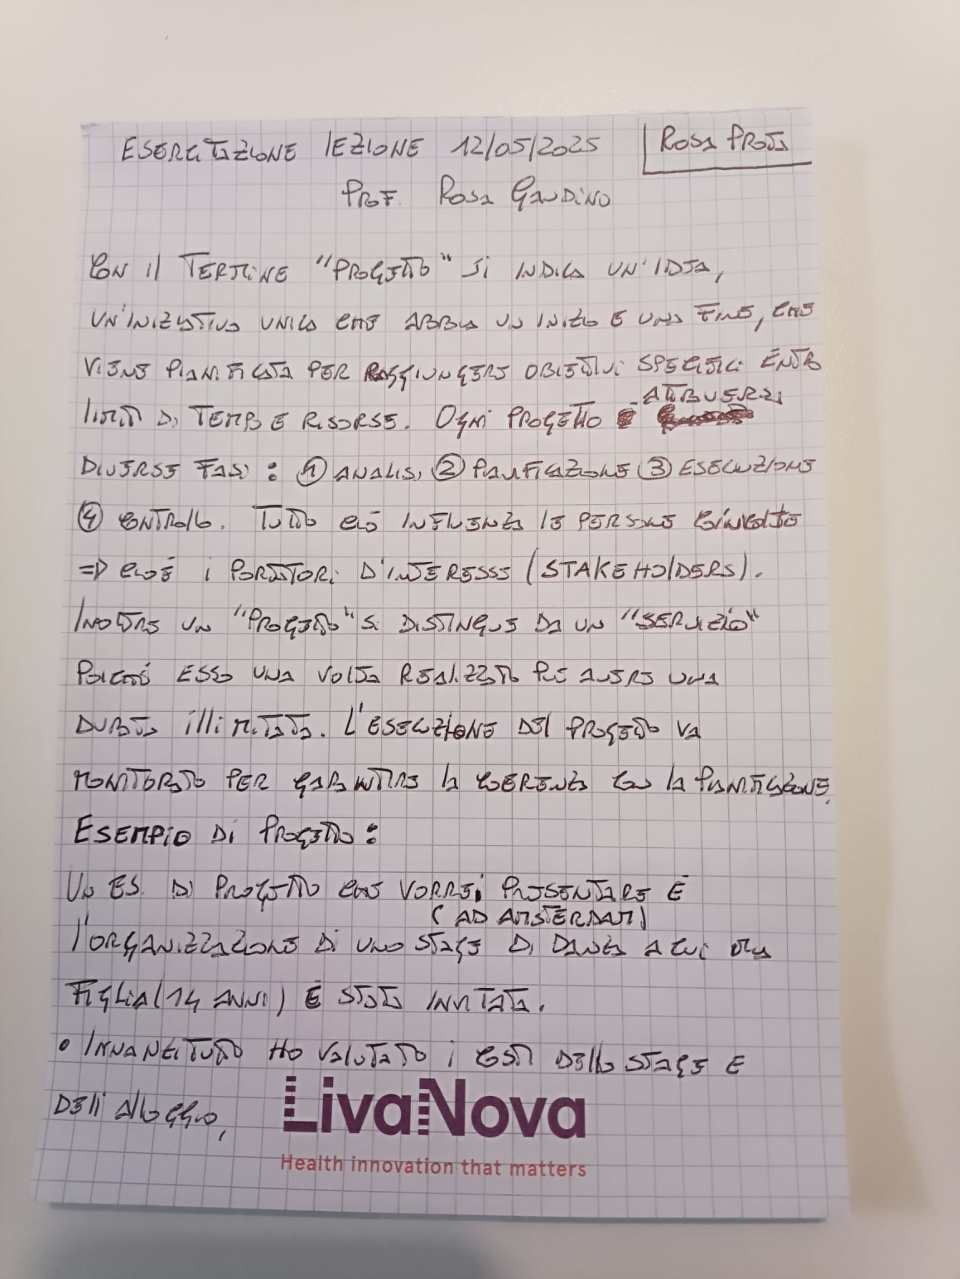 ESERCITAZIONE LEZIONE 12/05/2025
ROSA PROTA
PROF. ROSA GAUDINO
CON IL TERMINE "PROGETTO" SI INDICA UN'IDEA,
UN'INIZIATIVA UNICA CHE ABBIA UN INIZIO E UNA FINE, CHE
VIENE PIANIFICATA PER RAGGIUNGERE OBIETTIVI SPECIFICI ENTRO
LIMITI DI TEMPO E RISORSE. OGNI PROGETTO È
DIVERSE FASI: ① ANALISI ② PIANIFICAZIONE ③ ESECUZIONE
④ CONTROLLO. TUTTO CIÒ INFLUENZA LE PERSONE COINVOLTE
=> CIOÈ I PORTATORI D'INTERESSE (STAKEHOLDERS).
INOLTRE UN "PROGETTO" SI DISTINGUE DA UN "SERVIZIO"
POICHÉ ESSO UNA VOLTA REALIZZATO PUÒ AVERE UNA
DURATA ILLIMITATA. L'ESECUZIONE DEL PROGETTO VA
MONITORATO PER GARANTIRE LA COERENZA CON LA PIANIFICAZIONE.
ESEMPIO DI PROGETTO:
UN ES. DI PROGETTO CHE VORREI PRESENTARE È
(AD AMSTERDAM)
L'ORGANIZZAZIONE DI UNO STAGE DI DANZA A CUI MIA
FIGLIA (14 ANNI) È STATA INVITATA.
• INNANZITUTTO HO VALUTATO I COSTI DELLO STAGE E
DELL'ALLOGGIO,
LivaNova
Health innovation that matters